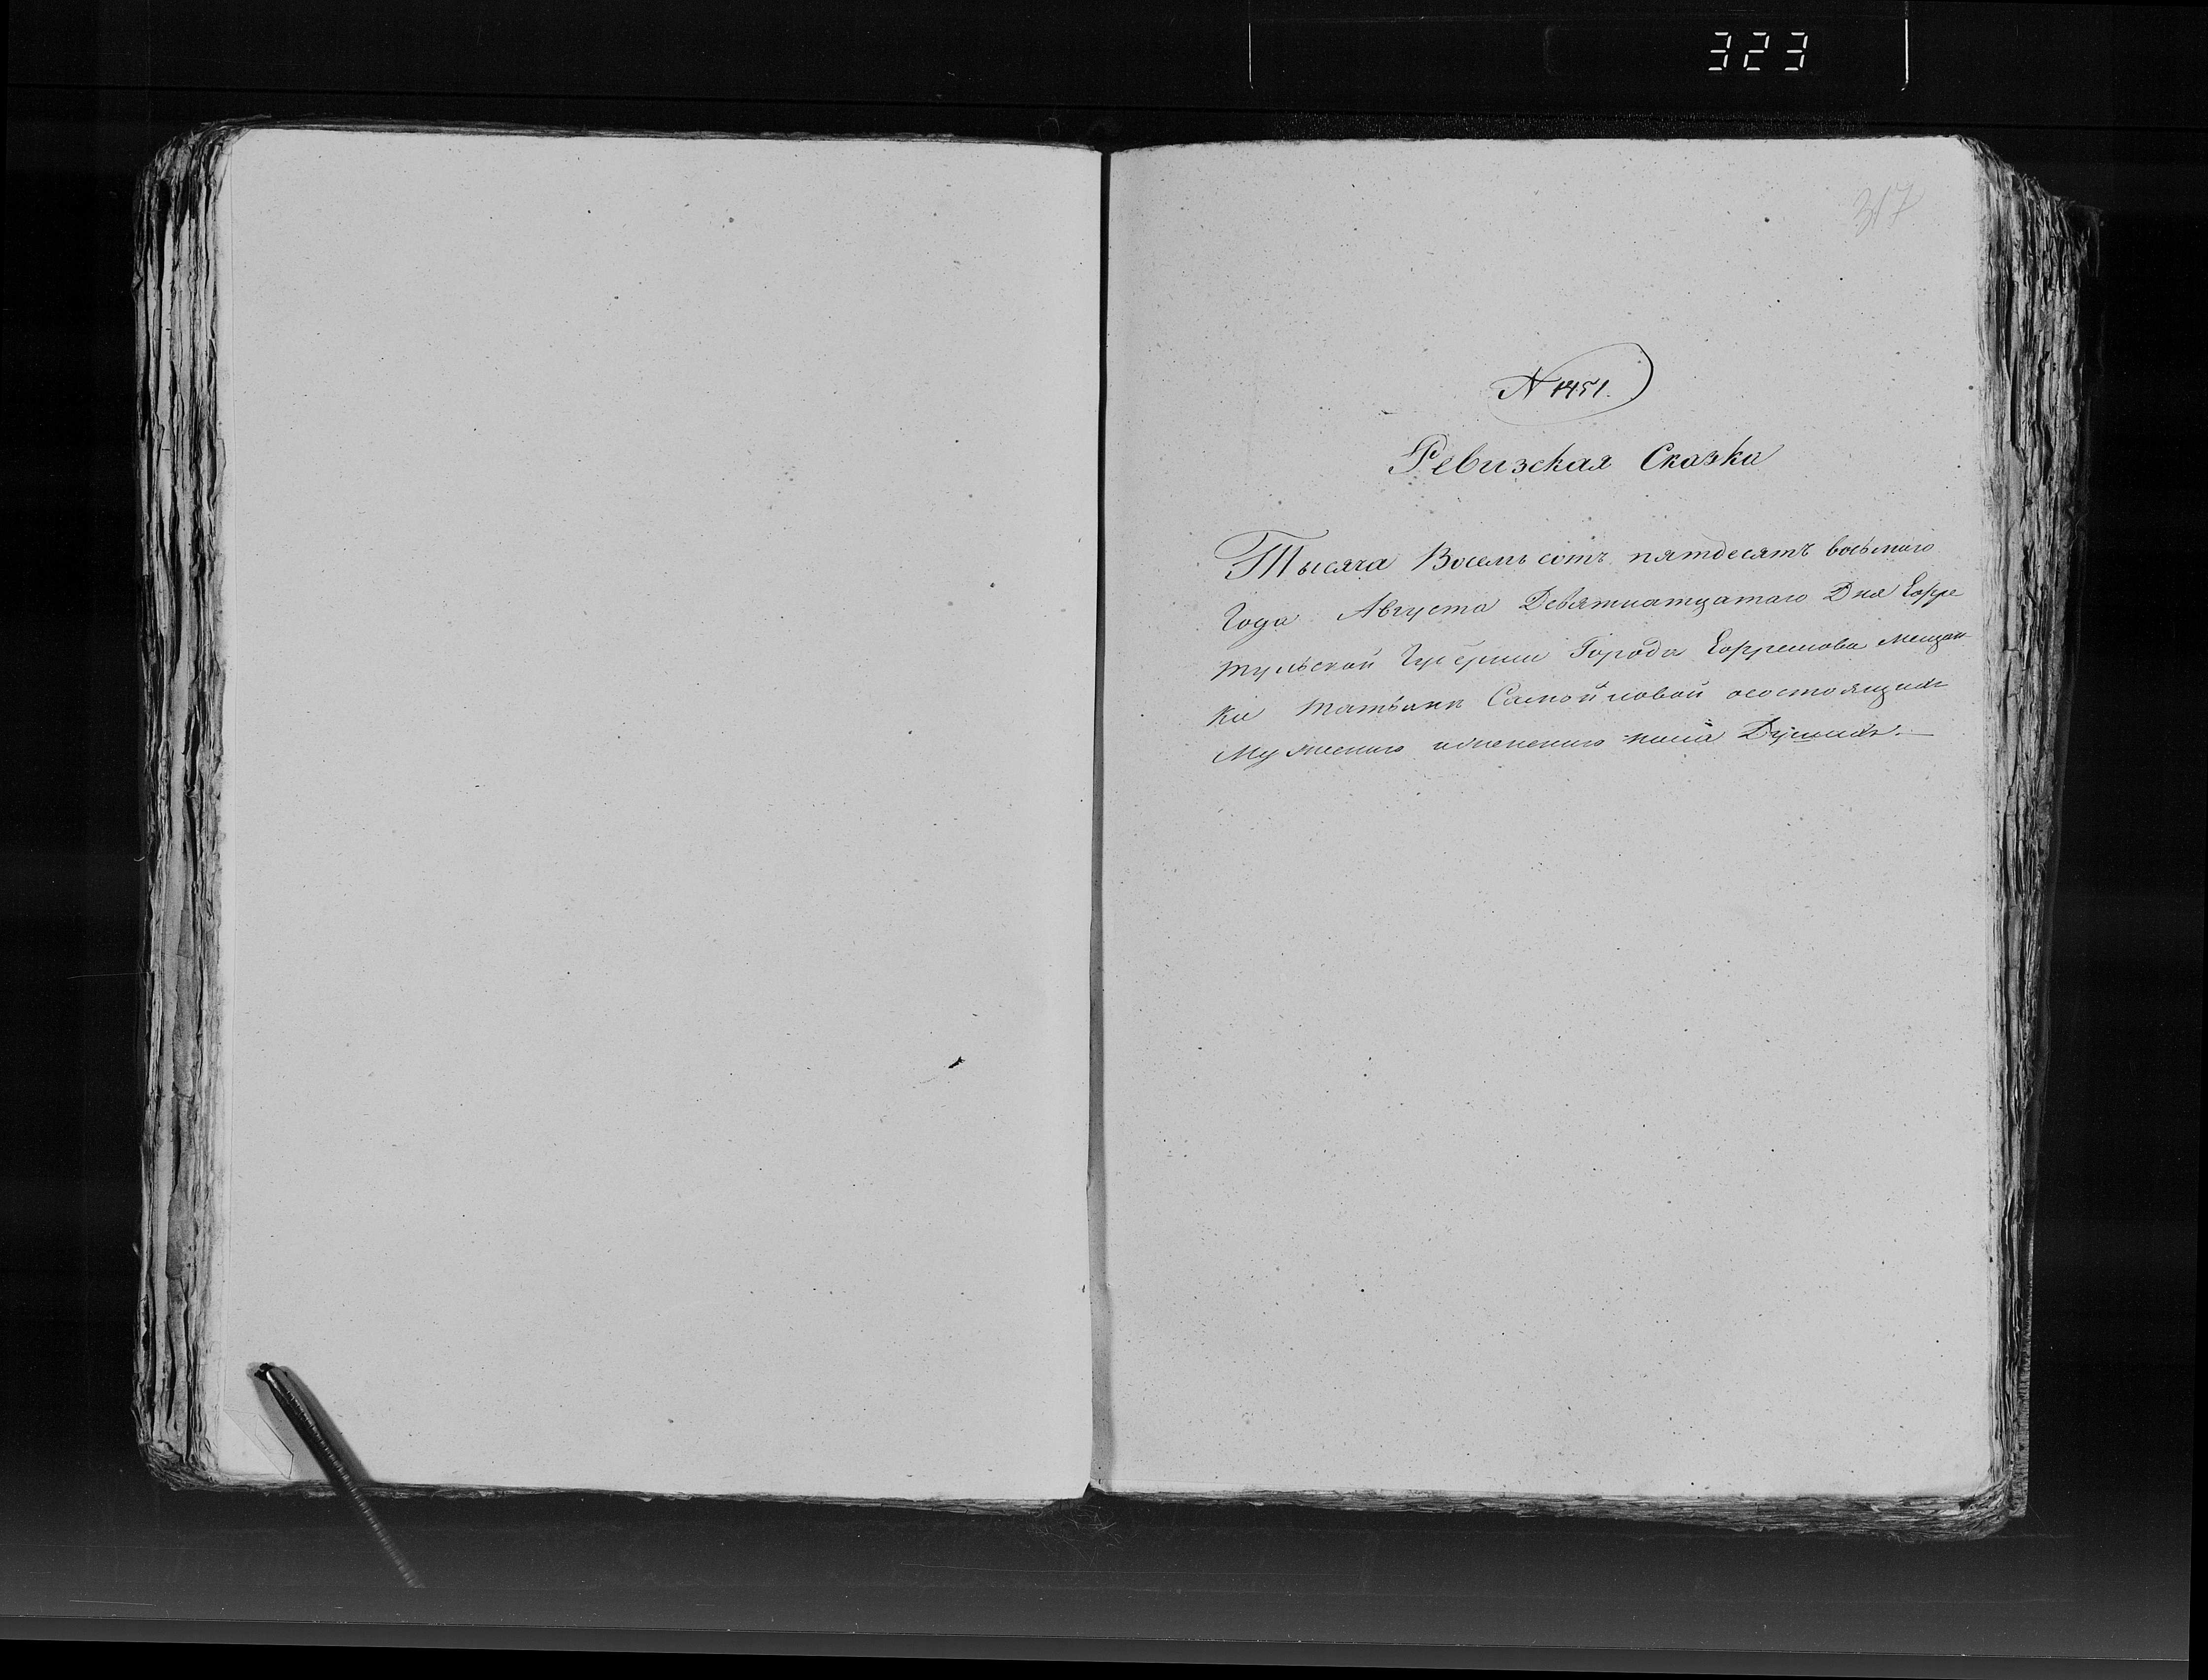 323
317
N 1451.
Ревизская Сказка
Тысяча Восемь сотъ пятдесятъ восьмаго
Года Августа Девятнатцатаго Дня Ефре
Тульской Губернии Города Ефремова мещан
ки Татьяны Самойловой осостоящихъ
Мужескаго иженскаго пола Душахъ.